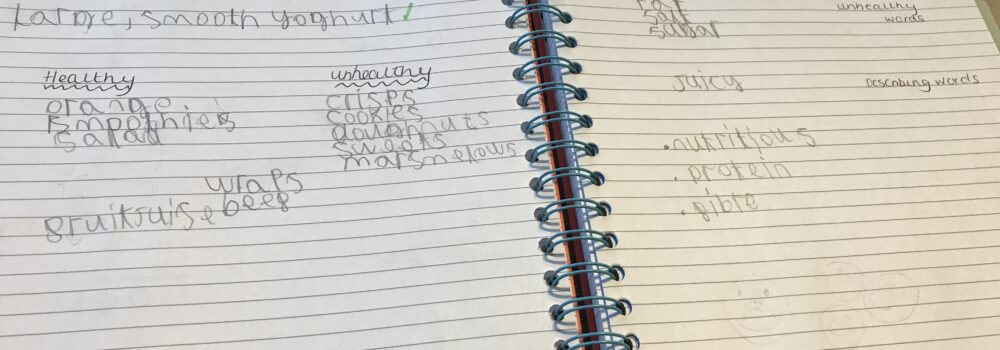 Large, smooth yoghurt
Healthy
orange
smoothies
salad
unhealthy
crisps
cookies
doughnuts
sweets
marsmelows
wraps
fruitjuise beef
salt
sugar
unhealthy
words
Juicy
Describing words
.nutritious
. protein
. fible